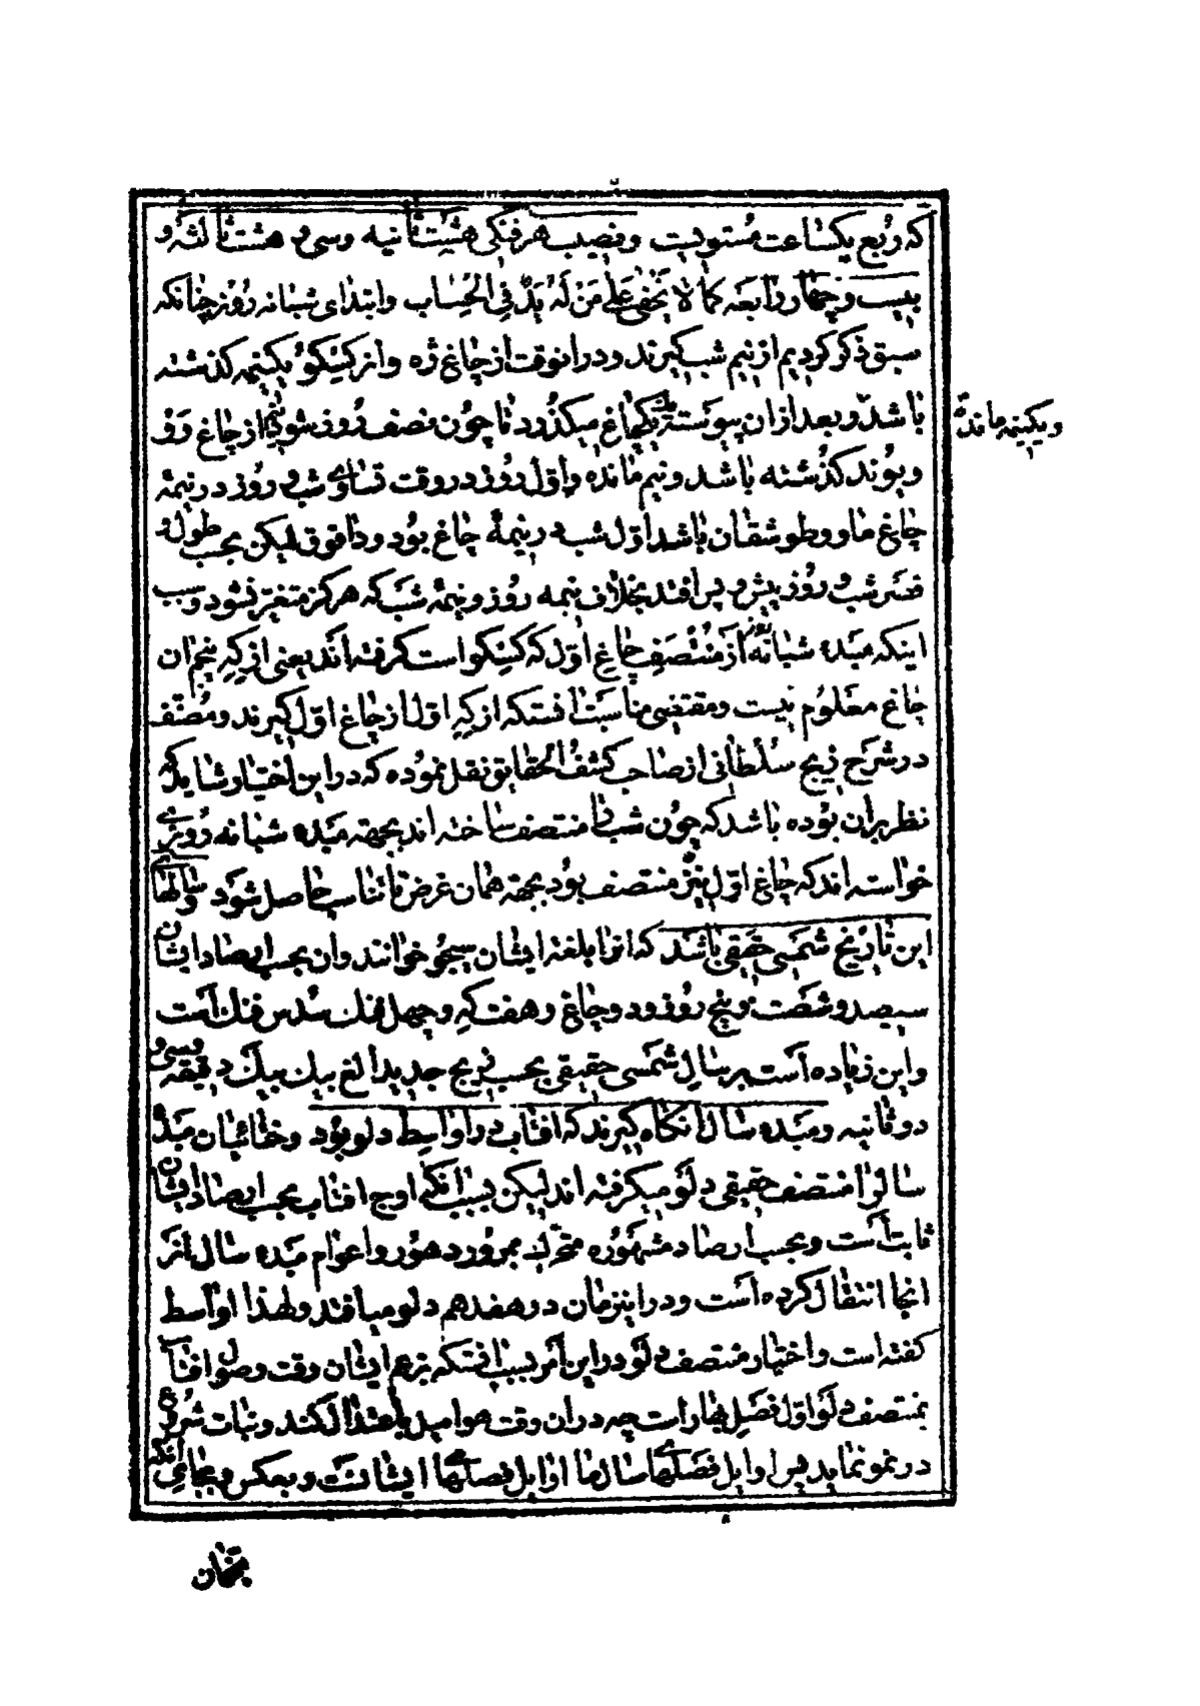 که ربع یکساعت مستویست و نصیب هر فنکی هشت ثانیه و سی و هشت ثالثه و
بیست و چهار رابعه کما لا یخفی علی من له ید فی الحساب و ابتدای شبانه روز چنانکه
سبق ذکر کردیم از نیم شب گیرند و در انوقت از چاغ ژه و از کیسکو یکنیمه کذشته
باشد و بعد از ان پیوسته یکچاغ میکذرد تا چون نصف روز شود نیم از چاغ روز
و یوند کذشته باشد و نیم مانده و اول روز در وقت تساوی شب و روز در نیمهٔ
چاغ ماو و طوشقان باشد اول شب در نیمهٔ چاغ بود و داقوق لیکن بحسب طول و
قصر شب و روز پیش و پس افتد بخلاف نیمه روز و نیمهٔ شب که هرکز متغیر نشود و سبب
اینکه مبدء شبانه روز از منتصف چاغ اول که کیسکو است کرفته اند یعنی از که پنجم ان
چاغ معلوم نیست و مقتضی مناسبت انستکه از که اول از چاغ اول گیرند و مصنف
در شرح زیج سلطانی از صاحب کشف الحقایق نقل نموده که در این اختیار شاید که
نظر بران بوده باشد که چون شب را منتصف ساخته اند بجهة مبدء شبانه روزی
خواسته اند که چاغ اول نیز منتصف بود بجهة همان غرض تا تناسب حاصل شود و سالهای
این تاریخ شمسی حقیقی باشد که انرا بلغة ایشان سیجو خوانند و ان بحسب ارصاد ایشان
سیصد و شصت و پنج روز و دو چاغ و هفت که و چهل فنك سدس فنك است
و این زیاده است بر سال شمسی حقیقی بحسب زیج جدید الغ بیك بیك دقیقه و سی و
دو ثانیه و مبدء سال انکاه گیرند که افتاب در اواسط دلو بود و ختائیان مبدء
سال را منتصف حقیقی دلو میکرفته اند لیکن بسبب انکه اوج افتاب بحسب ارصاد ایشان
ثابت است و بحسب ارصاد مشهوره متحرك بمرور دهور و اعوام مبدء سال از
انجا انتقال کرده است و در این زمان در هفدهم دلو میافتد و لهذا اواسط
کفته است و اختیار منتصف دلو در این امر بسبب انستکه بزعم ایشان وقت وصول افتاب
بمنتصف دلو اول فصل بهار است چه در ان وقت هوا میل باعتدال کند و نبات شروع
در نمو نماید پس اوایل فصلهای سال ما اوایل فصلهای ایشانست و بعکس و بجای انکه
و یکنیمه مانده